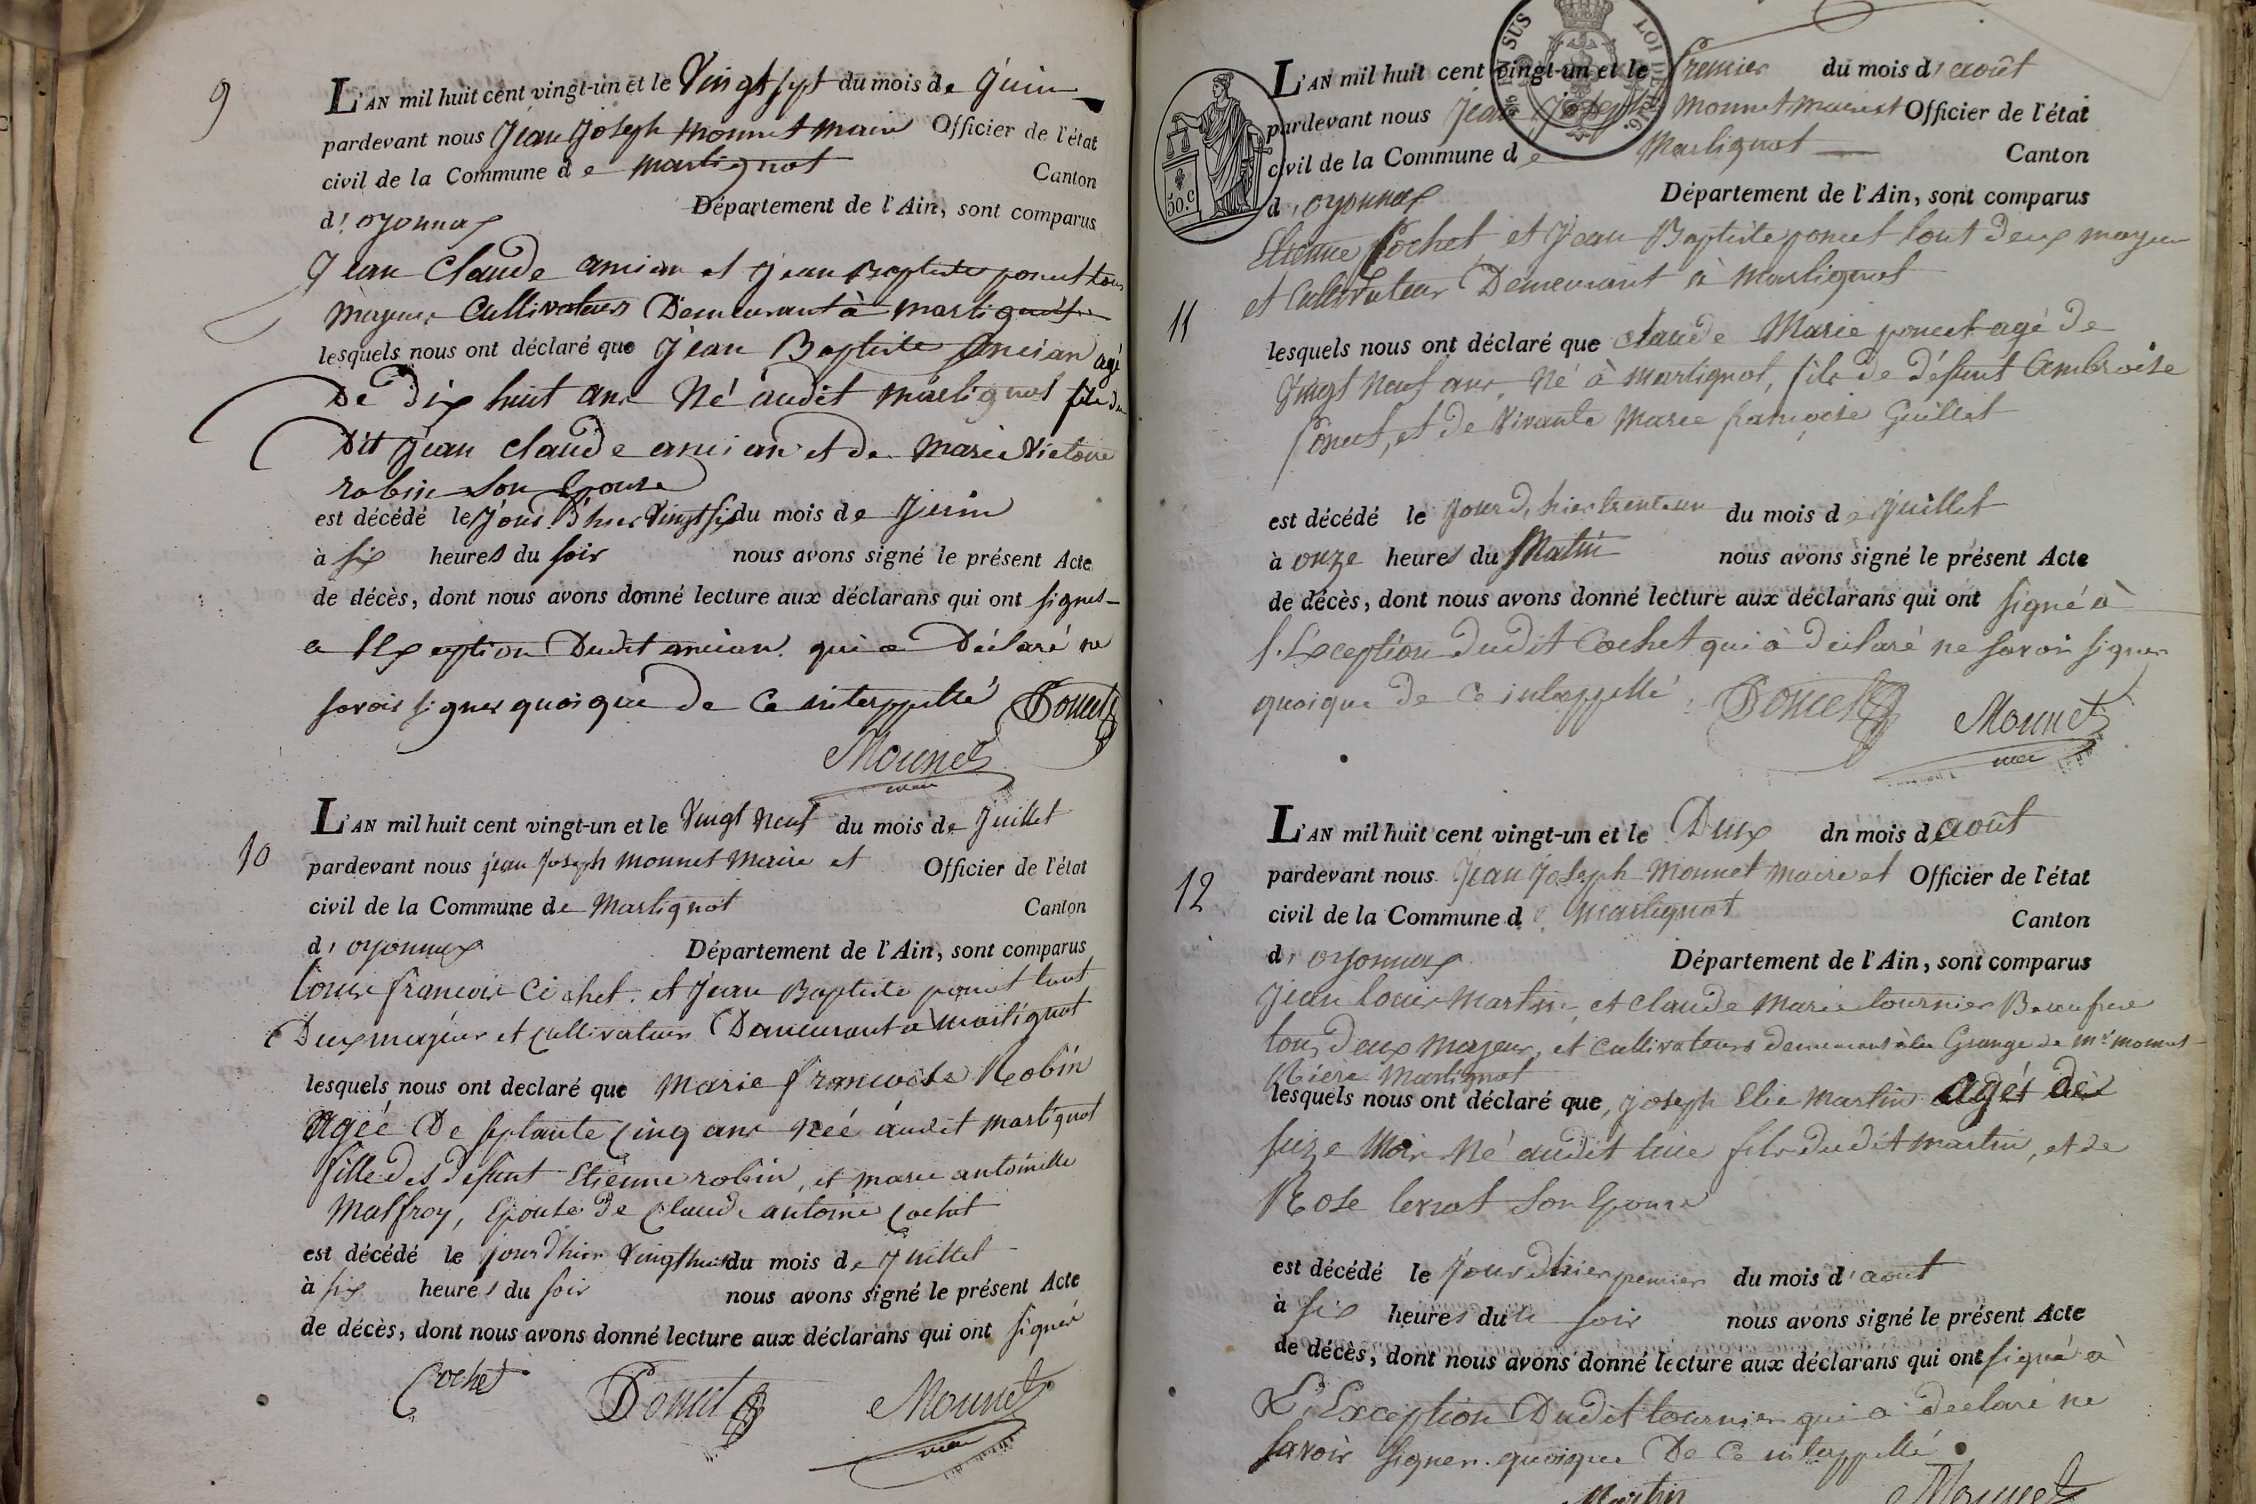 9
L'AN mil huit cent vingt-un et le Vingt sept du mois de Juin
pardevant nous Jean Joseph Monnet Maire Officier de l'état
civil de la Commune de Martignat Canton
d'oyonnax Département de l'Ain, sont comparus
Jean Claude ancian et Jean Baptiste poncet tous
majeurs Cultivateurs Demeurant à Martignat
lesquels nous ont déclaré que Jean Baptiste Ancian agé
De dix huit ans Né audit Martignat fils du
Dit Jean Claude ancian et de Marie Victoire
robin son Epouse
est décédé le Jour D'hier Vingt six du mois de Juin
à six heures du soir nous avons signé le présent Acte
de décès, dont nous avons donné lecture aux déclarans qui ont signés
a l'Exception Dudit ancian qui a Déclaré ne
savoir signer quoique de Ce interppellé Poncet
Monnet
10
L'AN mil huit cent vingt-un et le Vingt Neuf du mois de Juillet
pardevant nous jean Joseph Monnet Maire et Officier de l'état
civil de la Commune de Martignat Canton
d'oyonnax Département de l'Ain, sont comparus
Louis françois Cochet et Jean Baptiste poncet tout
Deux majeur et cultivateurs Demeurant a Martignat
lesquels nous ont declaré que Marie françoise Robin
agéé De septante cinq ans Néé audit Martignat
fille des defunt Etienne robin, et marie antoinette
Malfroy, Epouse De Claude antoine Cochet
est décédé le jour d'hier Vingt huit du mois de Juillet
à six heures du soir nous avons signé le présent Acte
de décès, dont nous avons donné lecture aux déclarans qui ont signés
Cochet Poncet Monnet
EN SUS LOI DE
50.c
L'AN mil huit cent vingt-un et le Premier du mois d'août
pardevant nous Jean Joseph Monnet maire et Officier de l'état
civil de la Commune de Martignat Canton
d'oyonnax Département de l'Ain, sont comparus
Etienne Cochet et Jean Baptiste poncet tout deux majeur
et Cultivateur Demeurant à Martignat
11
lesquels nous ont déclaré que claude Marie poncet agé de
Vingt Neuf ans Né à Martignat, fils de défunt Ambroise
Poncet, et de Vivante Marie françoise Guillet
est décédé le jour d'hier trente un du mois de juillet
à onze heures du Matin nous avons signé le présent Acte
de décès, dont nous avons donné lecture aux déclarans qui ont signé à
l'Exception dudit Cochet qui à déclaré ne savoir signer
quoique De Ce interppellé Poncet Monnet
12
L'AN mil huit cent vingt-un et le Deux dn mois de août
pardevant nous Jean Joseph Monnet Maire et Officier de l'état
civil de la Commune de Martignat Canton
d'oyonnax Département de l'Ain, sont comparus
Jean Louis Martin, et Claude Marie tournier Beaufrere
tous deux Majeur, et Cultivateurs demeurant à la Grange de mr monnet
Riere Martignat
lesquels nous ont déclaré que, joseph Elie Martin agés de
seize Mois Né audit lieu fils dudit Martin, et de
Rose son Epouse
est décédé le Jour d'hier premier du mois d'aout
à six heures du soir nous avons signé le présent Acte
de décès, dont nous avons donné lecture aux déclarans qui ont signé à
L'Exception Dudit tournier qui a déclaré ne
savoir signer quoique De Ce interppellé
Martin Monnet